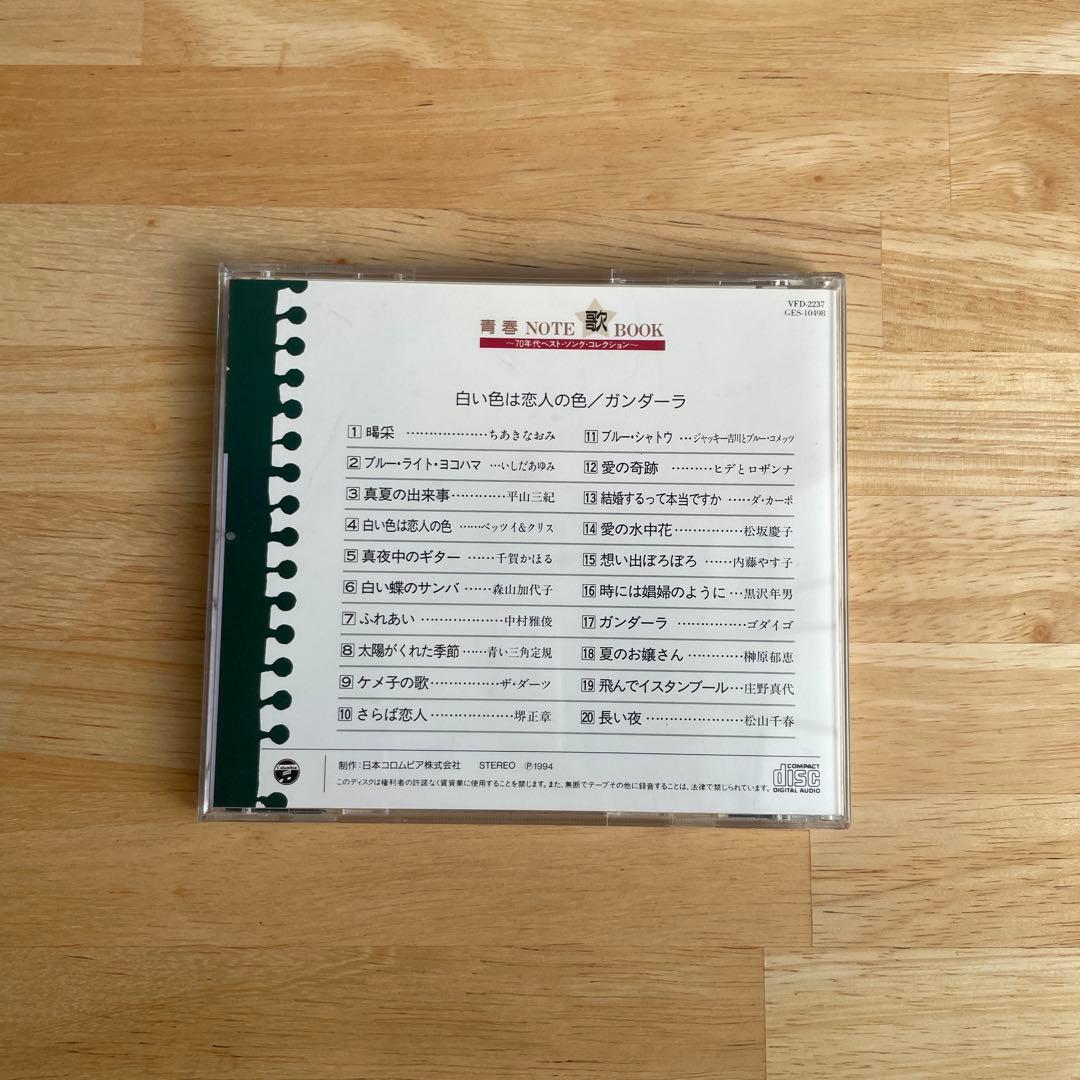 VFD-2237
GES-10498
青春 NOTE 歌 BOOK
〜70年代ベスト・ソング・コレクション〜
白い色は恋人の色／ガンダーラ
1 喝采 ………………ちあきなおみ
2 ブルー・ライト・ヨコハマ …いしだあゆみ
3 真夏の出来事…………平山三紀
4 白い色は恋人の色 ……ベッツイ&クリス
5 真夜中のギター ……千賀かほる
6 白い蝶のサンバ ……森山加代子
7 ふれあい ………………中村雅俊
8 太陽がくれた季節……青い三角定規
9 ケメ子の歌……………ザ・ダーツ
10 さらば恋人 ………………堺正章
11 ブルー・シャトウ …ジャッキー吉川とブルー・コメッツ
12 愛の奇跡 ………ヒデとロザンナ
13 結婚するって本当ですか ……ダ・カーポ
14 愛の水中花……………松坂慶子
15 想い出ぼろぼろ ……内藤やす子
16 時には娼婦のように…黒沢年男
17 ガンダーラ ………………ゴダイゴ
18 夏のお嬢さん …………榊原郁恵
19 飛んでイスタンブール…庄野真代
20 長い夜 …………………松山千春
Columbia
制作：日本コロムビア株式会社 STEREO Ⓟ1994
このディスクは権利者の許諾なく賃貸業に使用することを禁じます。また、無断でテープその他に録音することは、法律で禁じられています。
COMPACT
disc
DIGITAL AUDIO